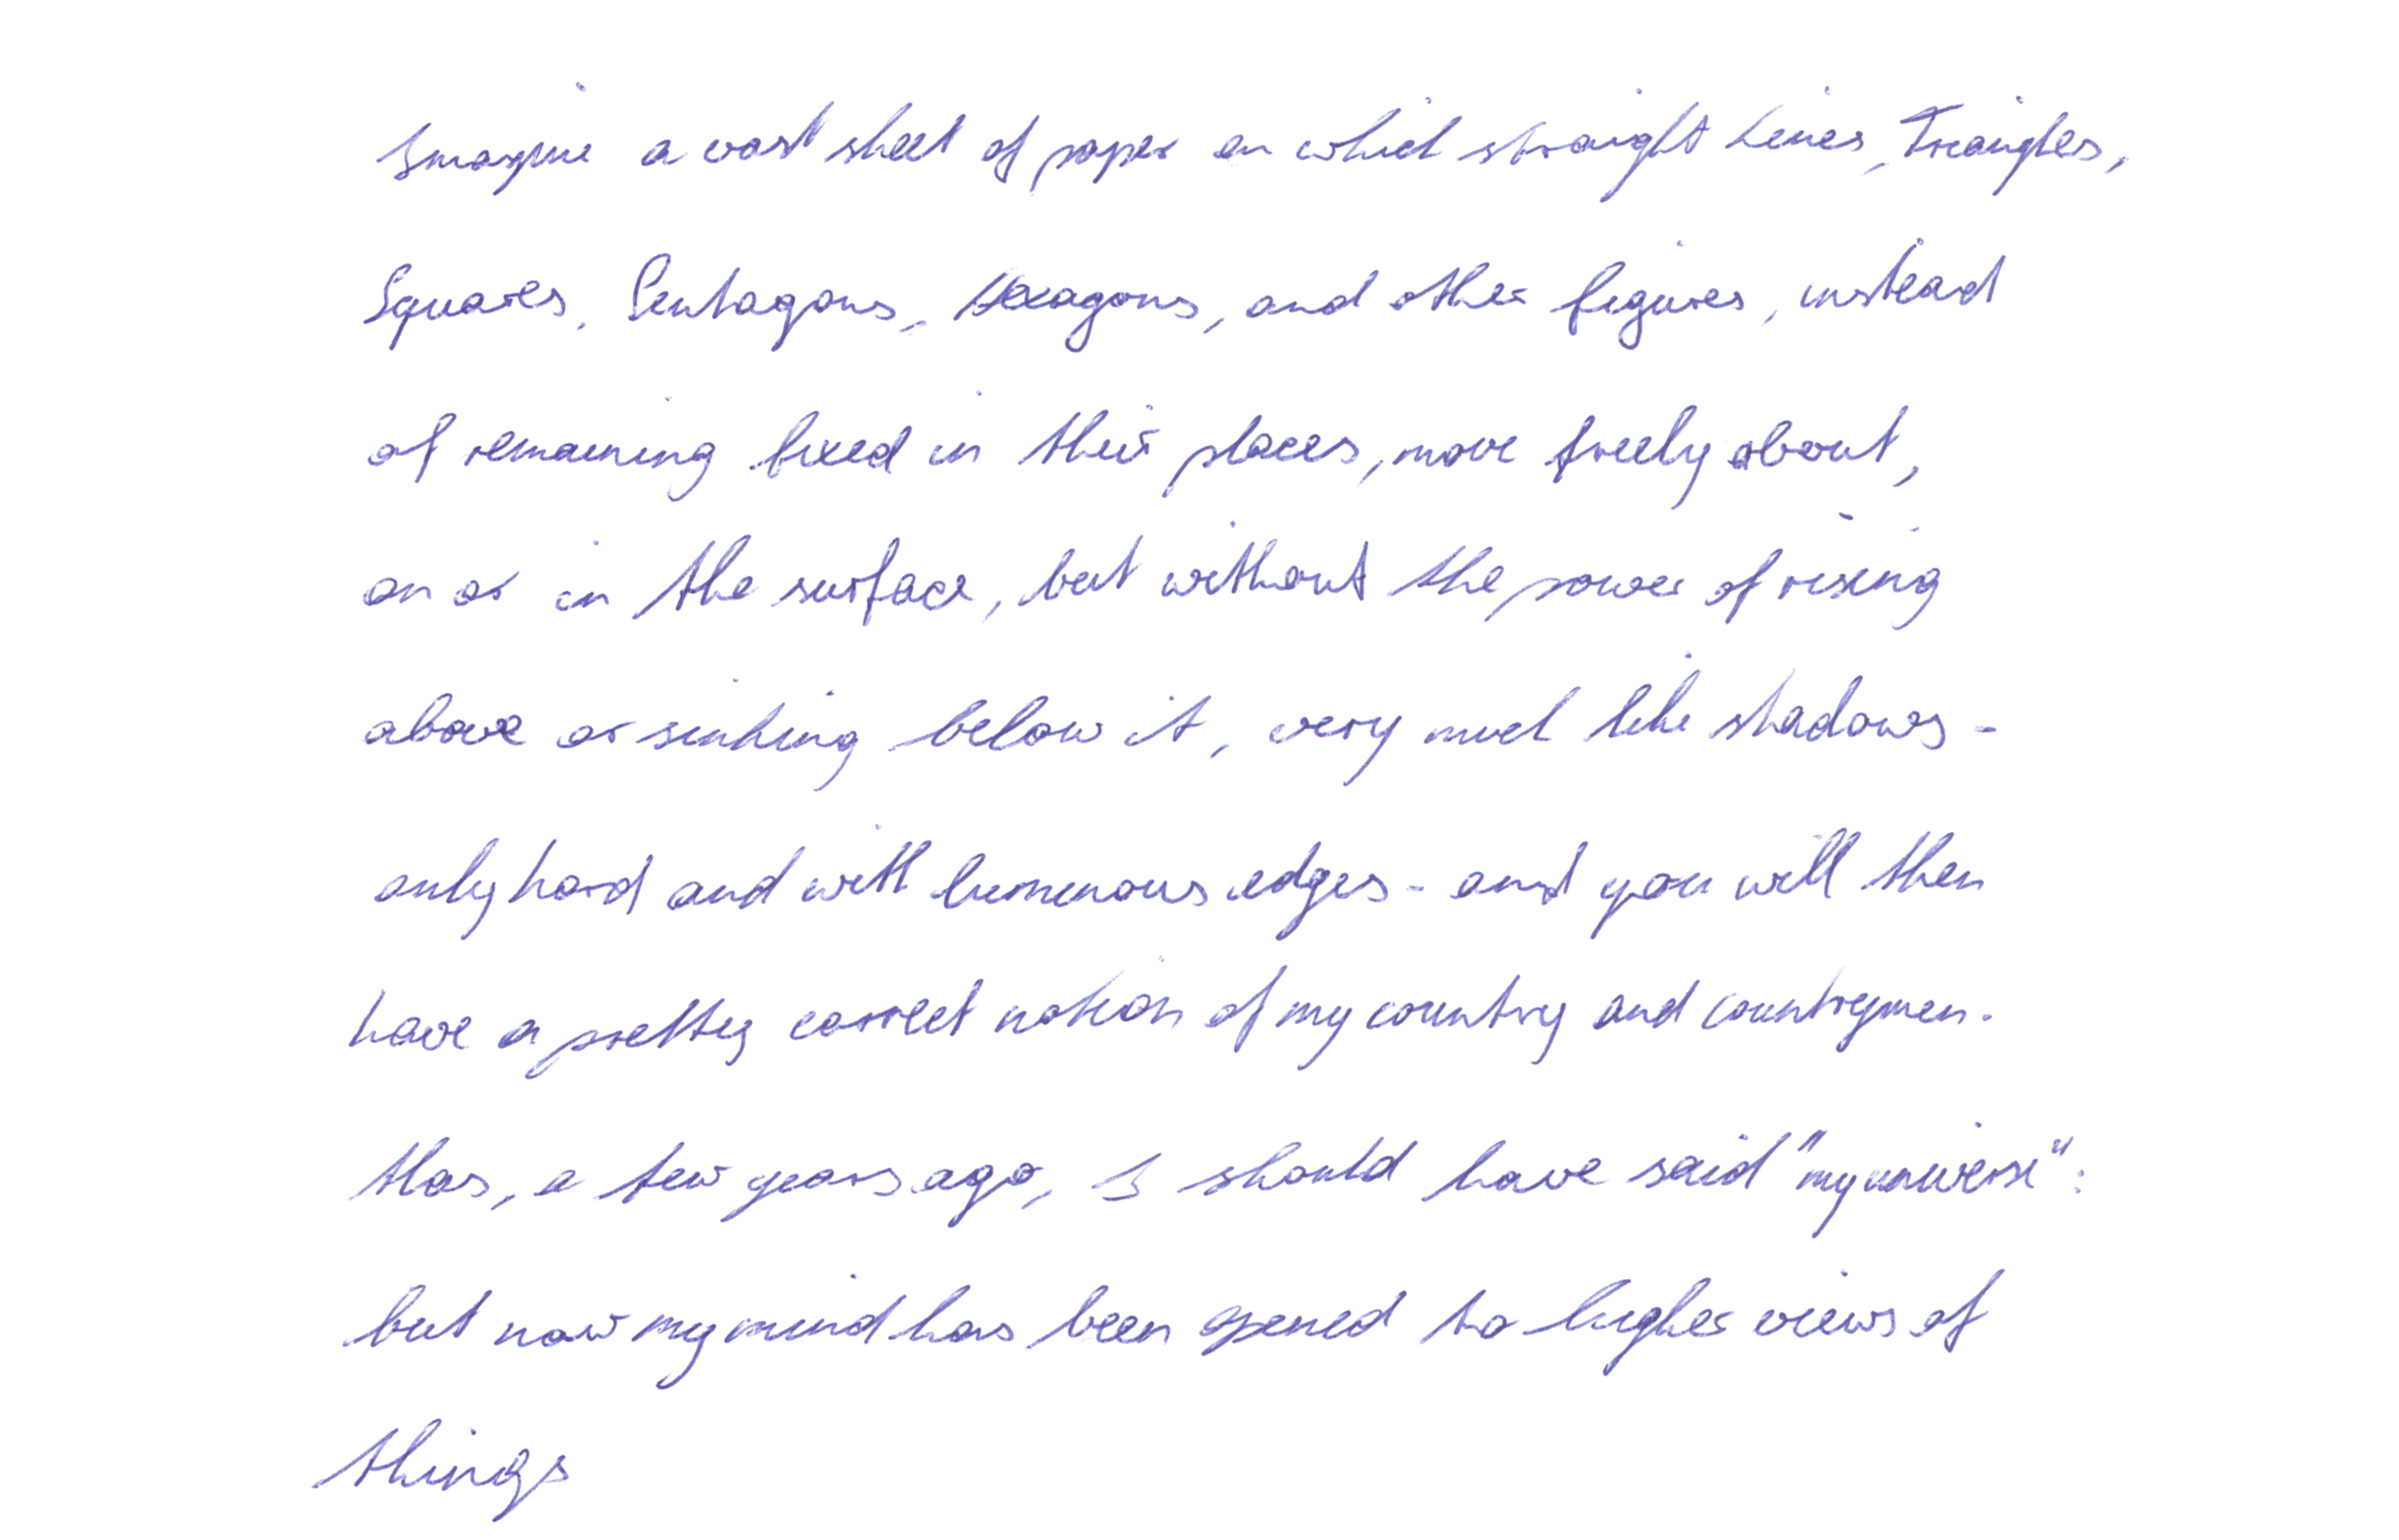 Imagine a vast sheet of paper on which straight Lines, Triangles,
Squares, Pentagons, Hexagons, and other figures, instead
of remaining fixed in their places, move freely about,
on or in the surface, but without the power of rising
above or sinking below it, very much like shadows -
only hard and with luminous edges - and you will then
have a pretty correct notion of my country and countrymen.
Alas, a few years ago, I should have said "my universe":
but now my mind has been opened to higher views of
things